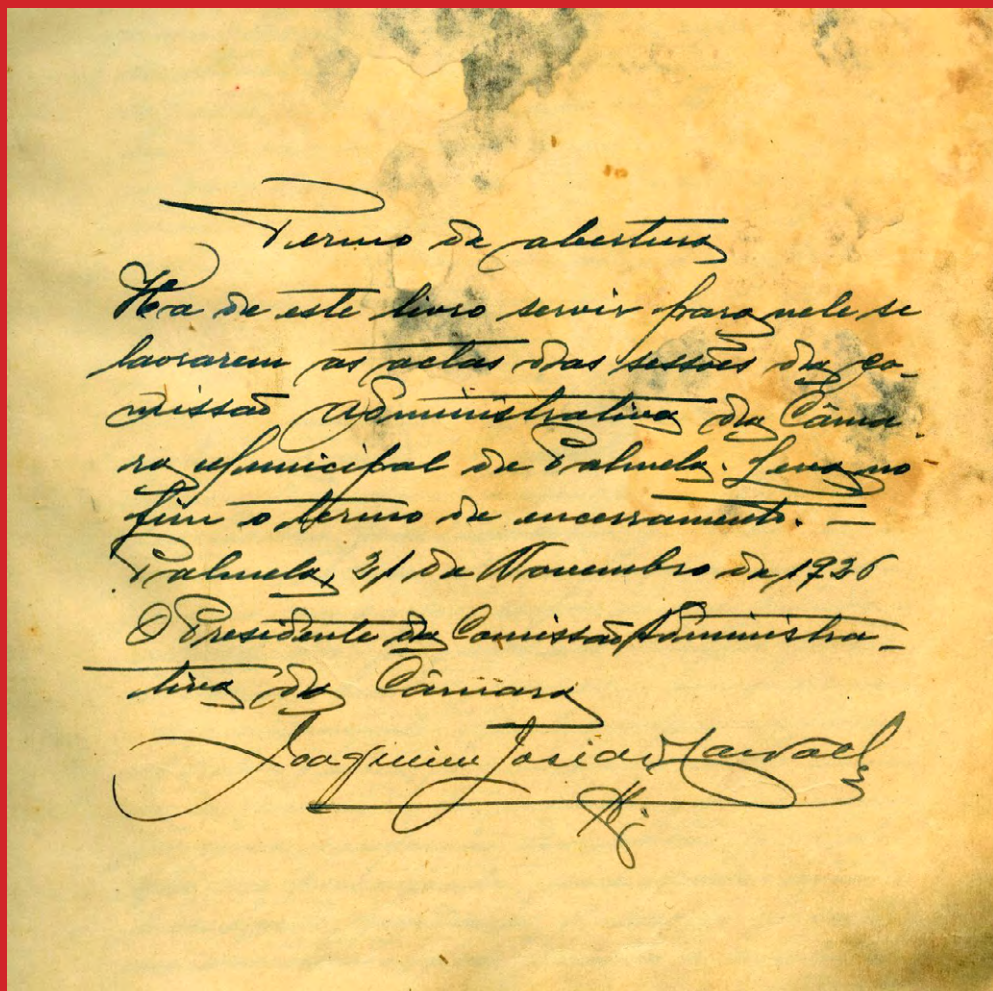 Termo de abertura
Ha de este livro servir para nele se
lavrarem as actas das sessões da co-
missão Administrativa da Câma-
ra Municipal de Palmela. Leva no
fim o termo de encerramento. —
Palmela, 21 de Novembro de 1926
O Presidente da Comissão Administra-
tiva da Câmara
Joaquim José